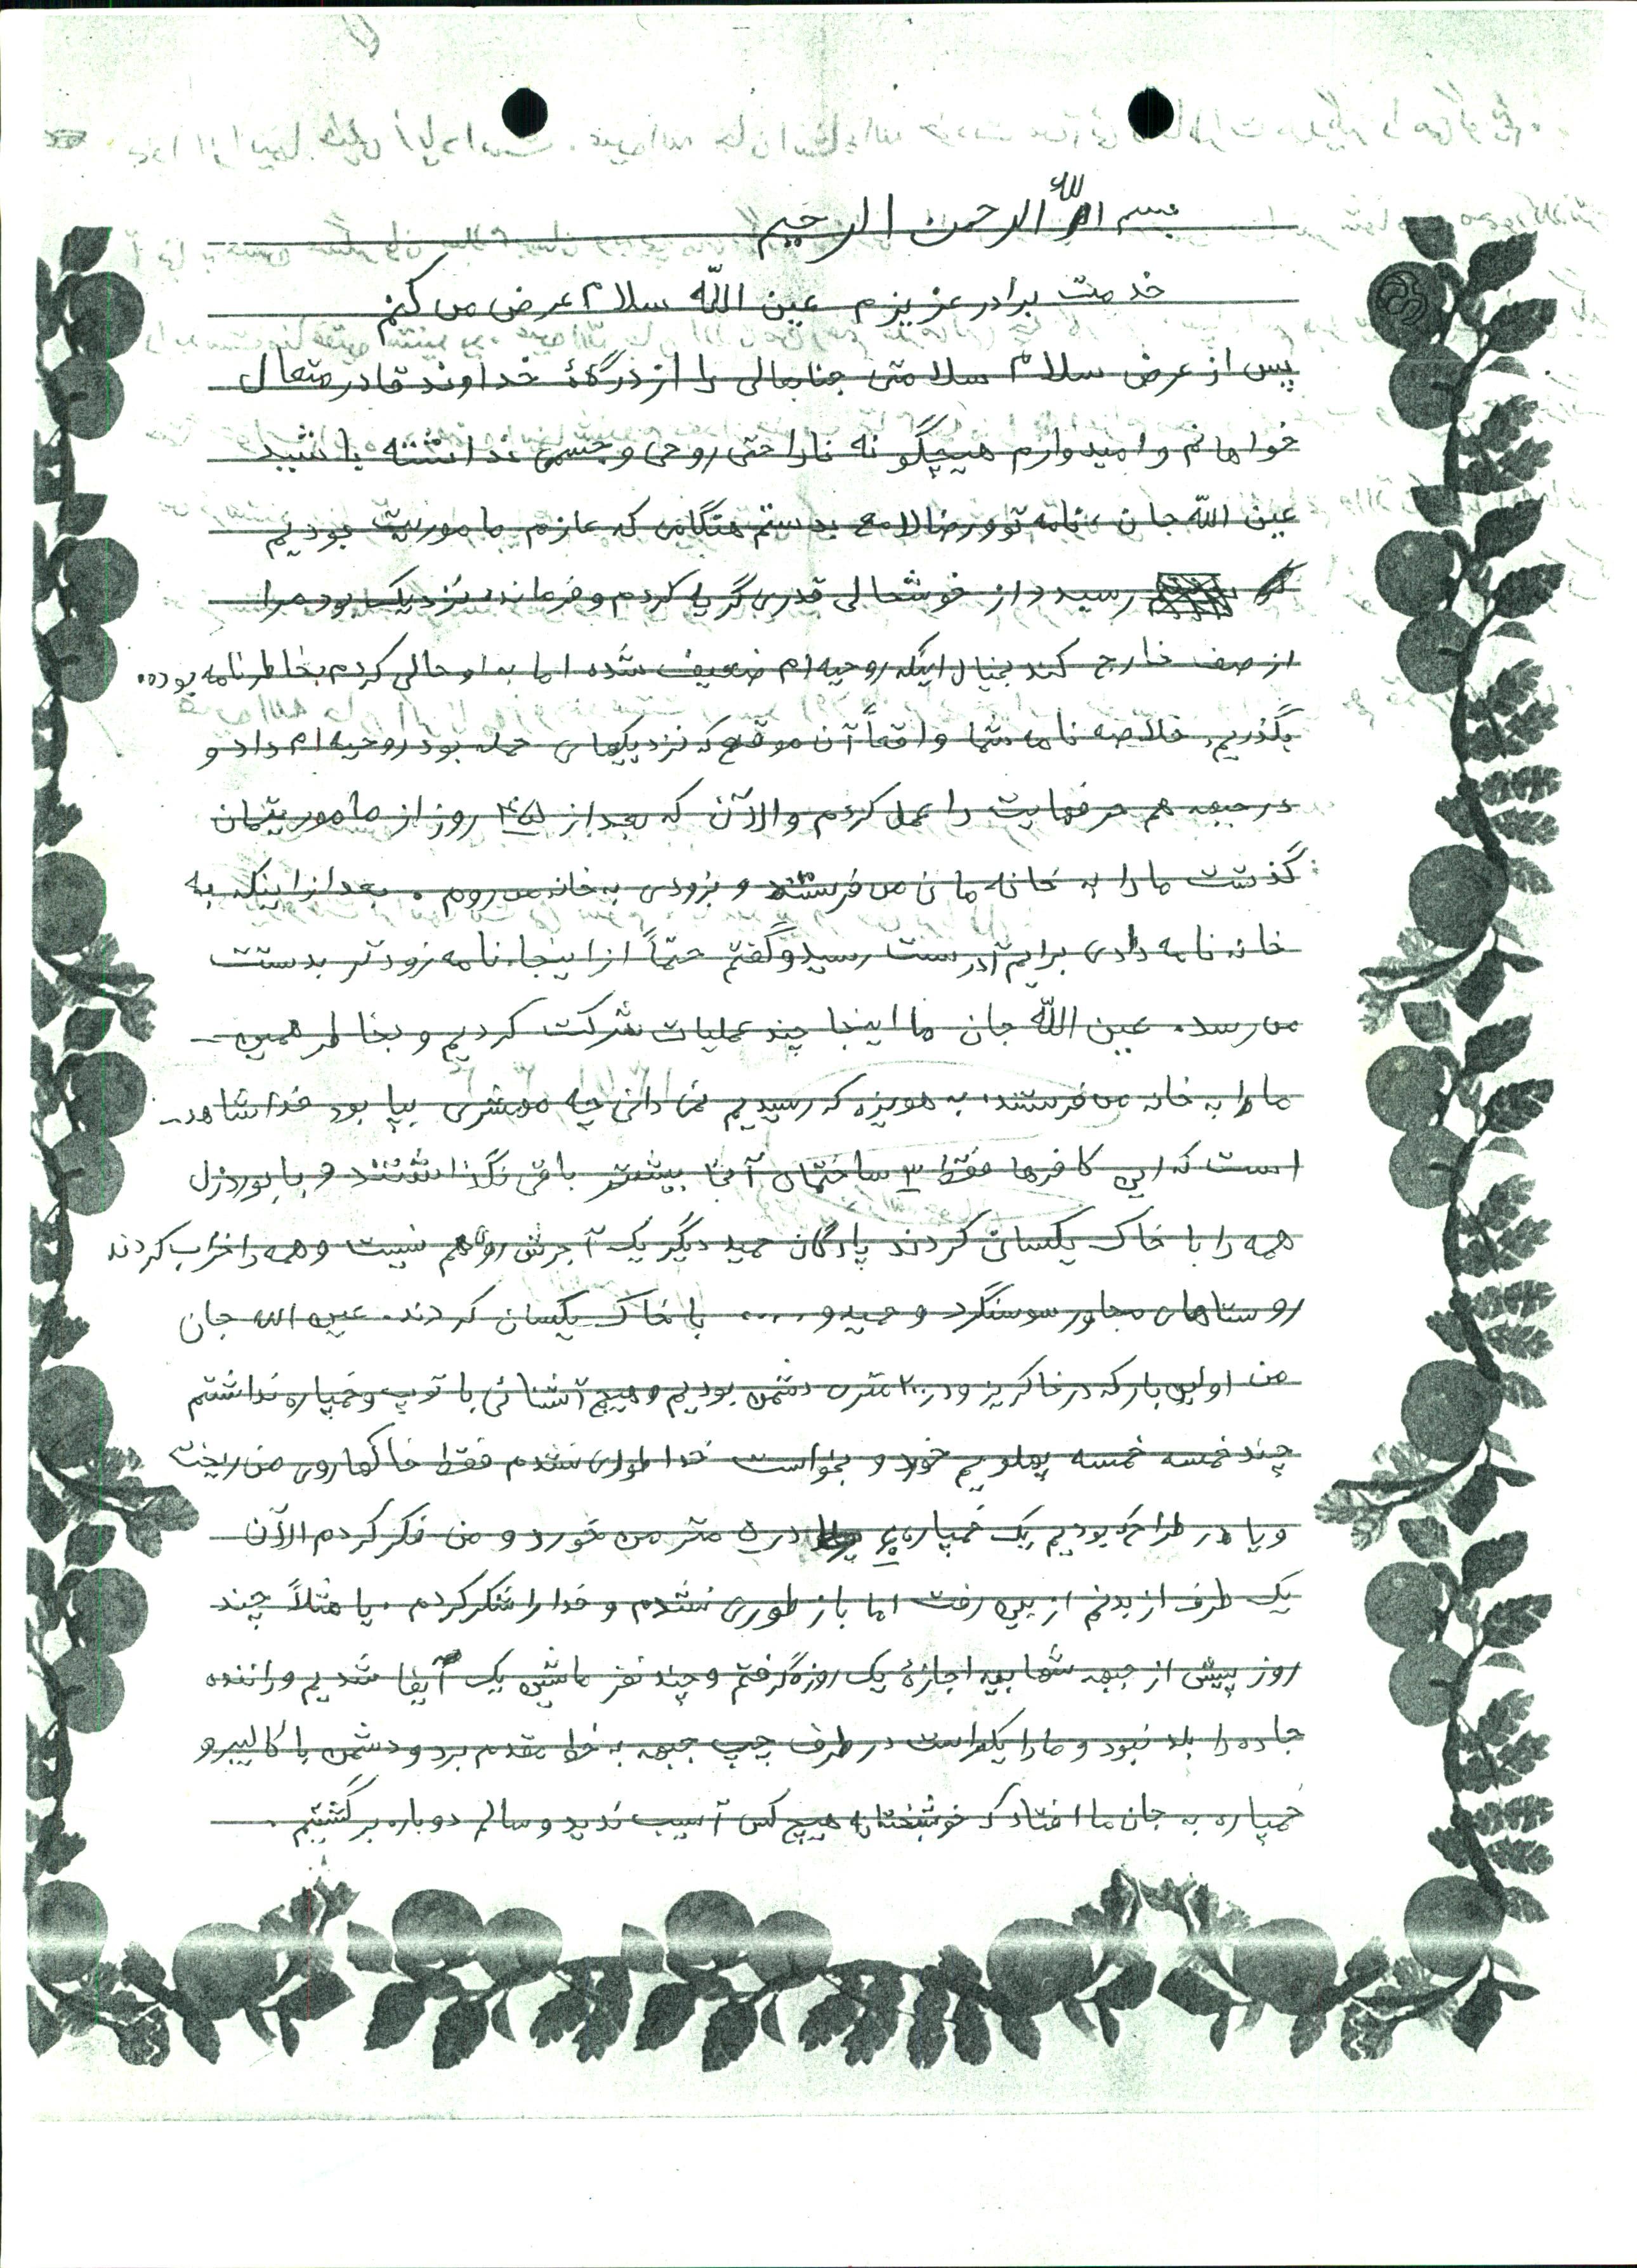 بسم الله الرحمن الرحیم
خدمت برادر عزیزم عین اللّه سلام عرض می کنم
پس از عرض سلام سلامتی جنابعالی را از درگاهٔ خداوند قادر متعال
خواهانم و امیدوارم هیچگونه ناراحتی روحی و جسمی نداشته باشید
عین اللّه جان نامه تو و رضا لامع بدستم هنگامی که عازم ماموریت بودیم
رسید و از خوشحالی قدری گریه کردم و فرمانده نزدیک بود مرا
از صف خارج کند بخیال اینکه روحیه ام ضعیف شده اما به او حالی کردم بخاطر نامه بوده.
بگذریم، خلاصه نامه شما واقعاً آن موقع که نزدیکیهای حمله بود روحیه ام داد و
در جبهه هم حرفهایت را عمل کردم و الآن که بعد از ۴۵ روز از ماموریتمان
گذشت ما را به خانه مان می فرستند و بزودی به خانه می روم. بعد از اینکه به
خانه نامه دادی برایم آدرست رسید و گفتم حتماً از اینجا نامه زودتر بدستت
می رسد. عین اللّه جان ما اینجا چند عملیات شرکت کردیم و بخاطر همین
ما را به خانه می فرستند. به هویزه که رسیدیم نمی دانی چه محشری بپا بود خدا شاهد
است که این کافرها فقط ۳ ساختمان آنجا بیشتر باقی نگذاشتند و با بوردزل
همه را با خاک یکسان کردند پادگان حمید دیگر یک آجرش رو هم نیست و همه را خراب کردند
روستاهای مجاور سوسنگرد و حمید و .... با خاک یکسان کردند. عین الله جان
من اولین بار که در خاکریز و در ۲۰۰ متری دشمن بودیم و هیچ آشنائی با توپ و خمپاره نداشتم
چند خمسه خمسه پهلویم خورد و بخواست خدا طوری نشدم فقط خاکها روی من ریخت
و یا در طراح که بودیم یک خمپاره در ۵ متر من خورد و من فکر کردم الآن
یک طرف از بدنم از بین رفت اما باز طوری نشدم و خدا را شکر کردم. یا مثلاً چند
روز پیش از جبهه شهابیه اجازهٔ یک روزه گرفتم و چند نفر ماشین یک آیفا شدیم و راننده
جاده را بلد نبود و ما را یکراست در طرف چپ جبهه به خط مقدم برد و دشمن با کالیبر و
خمپاره به جان ما افتاد که خوشبختانه هیچ کس آسیب ندید و سالم دوباره برگشتیم.